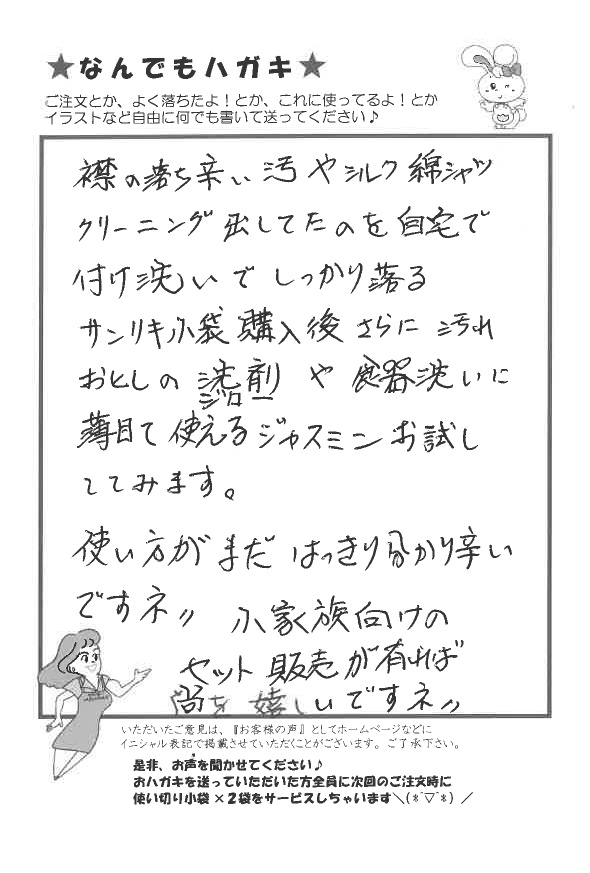 ★なんでもハガキ★
ご注文とか、よく落ちたよ!とか、これに使ってるよ!とか
イラストなど自由に何でも書いて送ってください♪
襟の落ち辛い汚やシルク綿シャツ
クリーニング出してたのを自宅で
付け洗いでしっかり落る
サンリキ小袋購入後さらに汚れ
おとしの洗剤や食器洗いに
ジロー
薄目て使えるジャスミンお試し
してみます。
使い方がまだはっきり分かり辛い
ですネ〃小家族向けの
セット販売が有れば
尚を嬉しいですネ〃
いただいたご意見は、『お客様の声』としてホームページなどに
イニシャル表記で掲載させていただくことがございます。ご了承下さい。
是非、お声を聞かせてください♪
おハガキを送っていただいた方全員に次回のご注文時に
使い切り小袋×2袋をサービスしちゃいます＼(*ˆ▽ˆ*)／